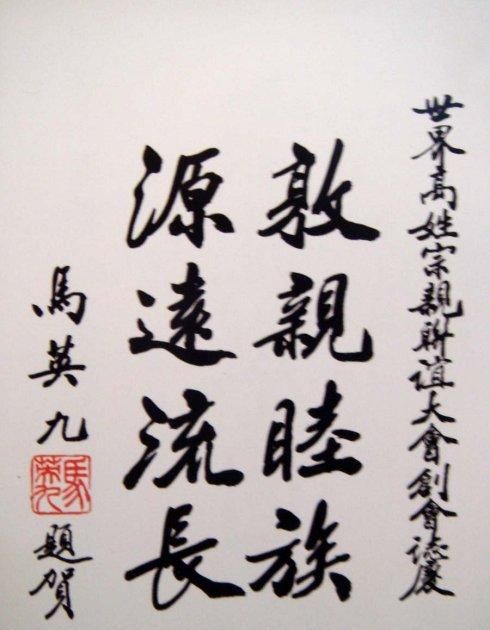 世界高姓宗親聯誼大會創會誌慶
敦親睦族
源遠流長
馬英九
馬英九
題賀